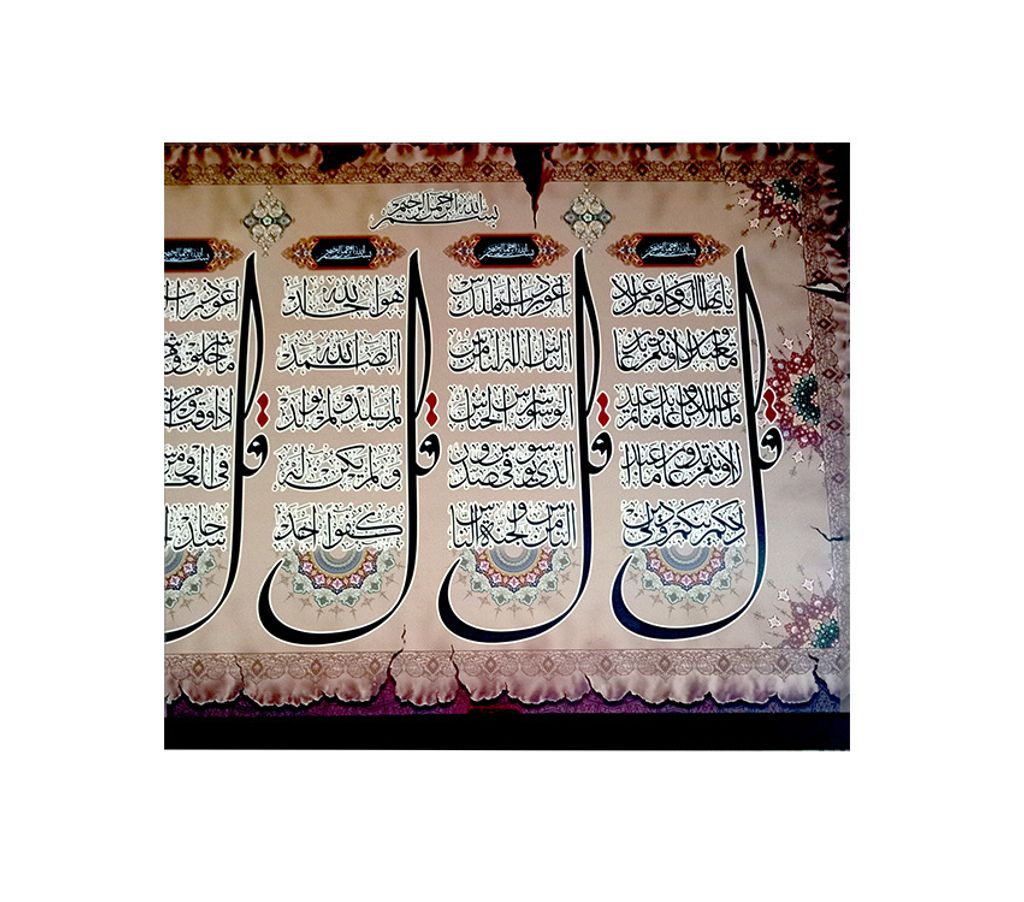 بسم الله الرحمن الرحيم
بسم الله الرحمن الرحيم
قل
يا ايها الكافرون لا اعبد
ما تعبدون ولا انتم عا
بدون ما اعبد ولا انا عابد ما عبد
تم ولا انتم عابدون ما اعبد
لكم دينكم ولي دين
بسم الله الرحمن الرحيم
قل
اعوذ برب الناس ملك
الناس اله الناس من شر
الوسواس الخناس
الذي يوسوس في صدور
الناس من الجنة والناس
بسم الله الرحمن الرحيم
قل
هو الله احد
الله الصمد
لم يلد ولم يولد
ولم يكن له
كفوا احد
بسم الله الرحمن الرحيم
قل
اعوذ برب
ما خلق ومن
اذا وقب ومن
في العقد ومن
حاسد